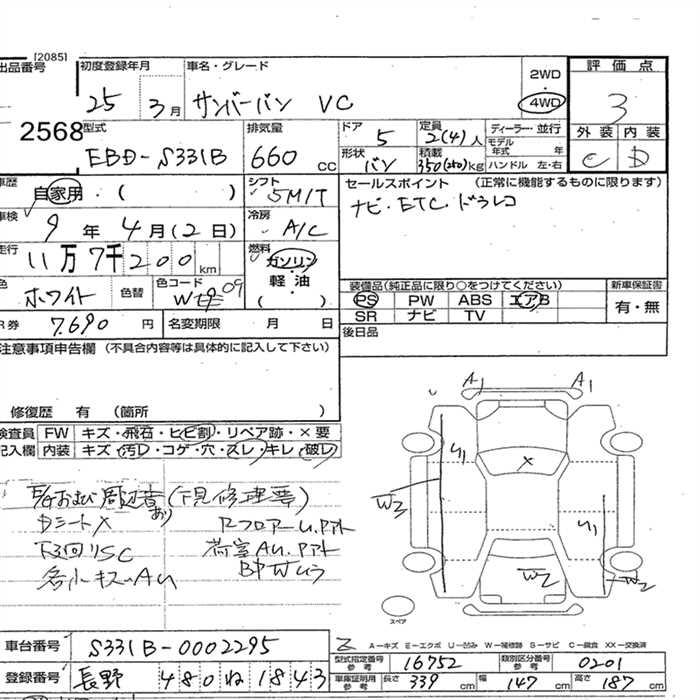 [2085]
出品番号 初度登録年月 車名・グレード 2WD 評価点
25 3月 サンバーバン VC 4WD 3
2568 型式 排気量 ドア 定員 ディーラー・並行 外装 内装
EBD-S331B 660 cc 5 2(4)人 モデル年式 年 C D
形状 バン 積載 350(250)kg ハンドル 左・右
車歴 自家用・( ) シフト 5M/T セールスポイント (正常に機能するものに限ります)
車検 9年 4月(2日) 冷房 A/C ナビ・ETC・ドラレコ
走行 11万7千200km 燃料 ガソリン
軽・油
( )
色 ホワイト 色替 色コード W09 装備品(純正品に限り○をつけてください) 新車保証書
PS PW ABS エアB 有・無
R券 7,690円 名変期限 月 日 SR ナビ TV
後日品
注意事項申告欄 (不具合内容等は具体的に記入して下さい)
修復歴 有 (箇所 )
検査員 FW キズ・飛石・ヒビ割・リペア跡・×要
記入欄 内装 キズ・汚れ・コゲ・穴・スレ・キレ・破レ
A1 A1
U1 X W3
U1
W2 W2
(下見修理要)
Dシート× あり Rフロアーu.Pアト
下回りSC 荷室Au.Pアト
各小キズAu BドアWムラ
スペア
A−キズ E−エクボ U−凹み W−補修跡 S−サビ C−腐食 XX−交換済
車台番号 S331B-0002295 型式指定番号 参考 16752 類別区分番号 参考 0201
登録番号 長野 480 ね 1843 車庫証明用 参考 長さ 339cm 幅 147cm 高さ 187cm